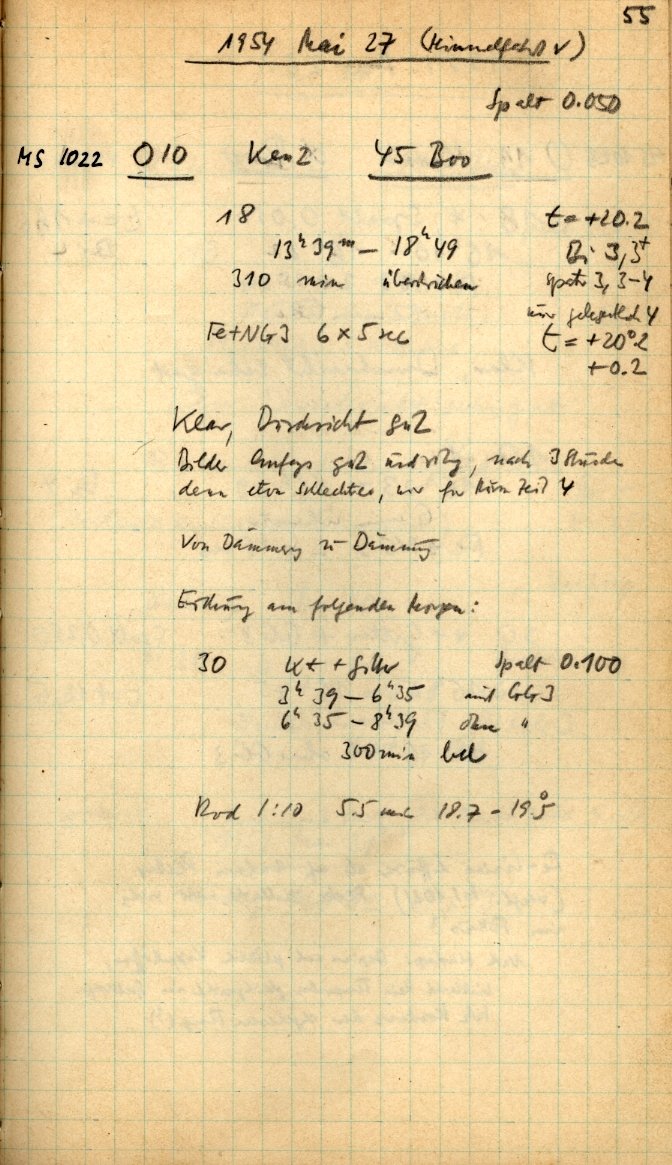 55
1954 Mai 27 (Himmelfahrt)
Spalt 0.050
MS 1022 O10 45 Boo
18 t = +20.2
13ʰ 39ᵐ — 18ʰ 49 Bi 3, 3⁺
310 min überstrichen später 3, 3-4
nur gelegentlich 4
Fe+NG3 6 x 5 sec t = +20°.2
+0.2
Klar, Durchsicht gut
Bilder Anfangs gut und ruhig, nach 3 Stunden
dann etwas schlechter, nur für kurze Zeit 4
Von Dämmerung zu Dämmerung
Eichung am folgenden Morgen:
30 Kt + Filter Spalt 0.100
3ʰ 39 — 6ʰ 35 mit GG3
6ʰ 35 — 8ʰ 39 ohne "
300 min bel
Rod 1:10 5.5 min 18.7 - 19°.5